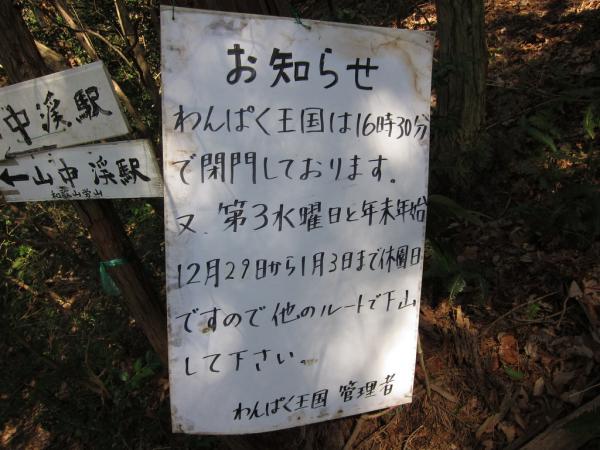 お知らせ
わんぱく王国は16時30分
で閉門しております。
又、第3水曜日と年末年始
12月29日から1月3日まで休園日
ですので他のルートで下山
して下さい。
わんぱく王国 管理者
中渓駅
←山中渓駅